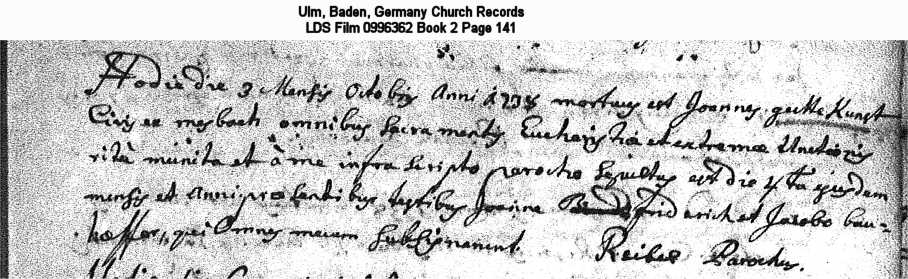 Ulm, Baden, Germany Church Records
LDS Film 0996362 Book 2 Page 141
Hodie die 3 Mensis Octobris Anni 1738 mortuus est Joannes
Civis ex omnibus Sacramentis Eucharistiae et extremae Unctionis
rite munitus et à me infra scripto parocho sepultus est die 4ta ejusdem
mensis et Anni praesentibus testibus Joanne friderich et Jacobo bau=
hoffer, qui Omnes mecum subsignarunt. Reiber Parochus.